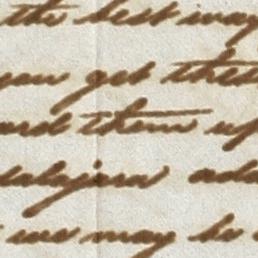 the best way
you get thes
ard them up
dalajara ada
we may be